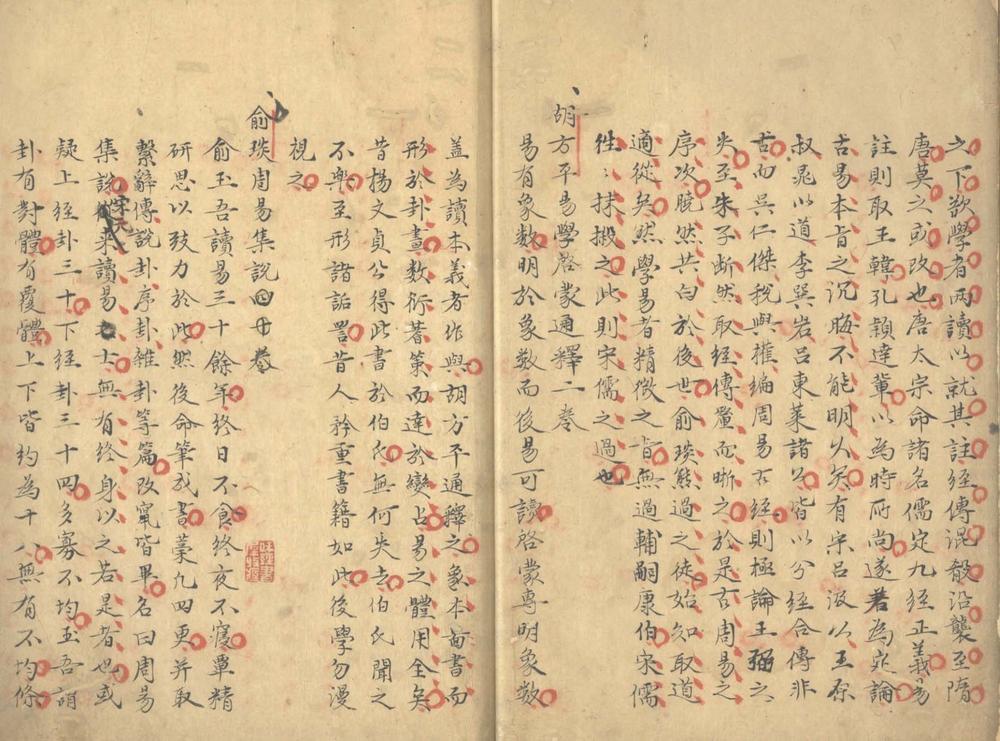 之下欲學者兩讀以就其註經傳混殽沿襲至隋
唐莫之或改也唐太宗命諸名儒定九經正義易
註則取王韓孔穎達輩以為時所尚遂著為定論
古易本旨之沉晦不能明久矣有宋呂汲以王原
叔晁以道李巽岩呂東萊諸公皆以分經合傳非
古而吳仁傑稅與權編周易古經則極論王弼之
失至朱子断然取經傳釐而晰之於是古周易之
序次脫然共白於後世俞琰熊過之徒始知取道
適從矣然學易者精微之旨無過輔嗣康伯宋儒
徃〻抹摋之此則宋儒之過也
胡方平易學啓蒙通釋二卷
易有象數明於象數而後易可讀啓蒙專明象數
盖為讀本義者作與胡方平通釋之象本啚書而
形於卦畫数衍蓍策而達於變占易之體用全矣
昔揚文貞公得此書於伯氏無何失去伯氏聞之
不樂至形諸詬詈昔人矜重書籍如此後學勿漫
視之
俞琰周易集說四十卷
俞玉吾讀易三十餘年終日不食終夜不寢覃精
研思以致力於此然後命筆成書藁九四更并取
繫辭傳說卦序卦雜卦等篇改竄皆畢名曰周易
集說宋天讀易之士無有終身以之若是者也或
疑上經卦三十下經卦三十四多寡不均玉吾謂
卦有對體有覆體上下皆約為十八無有不均條